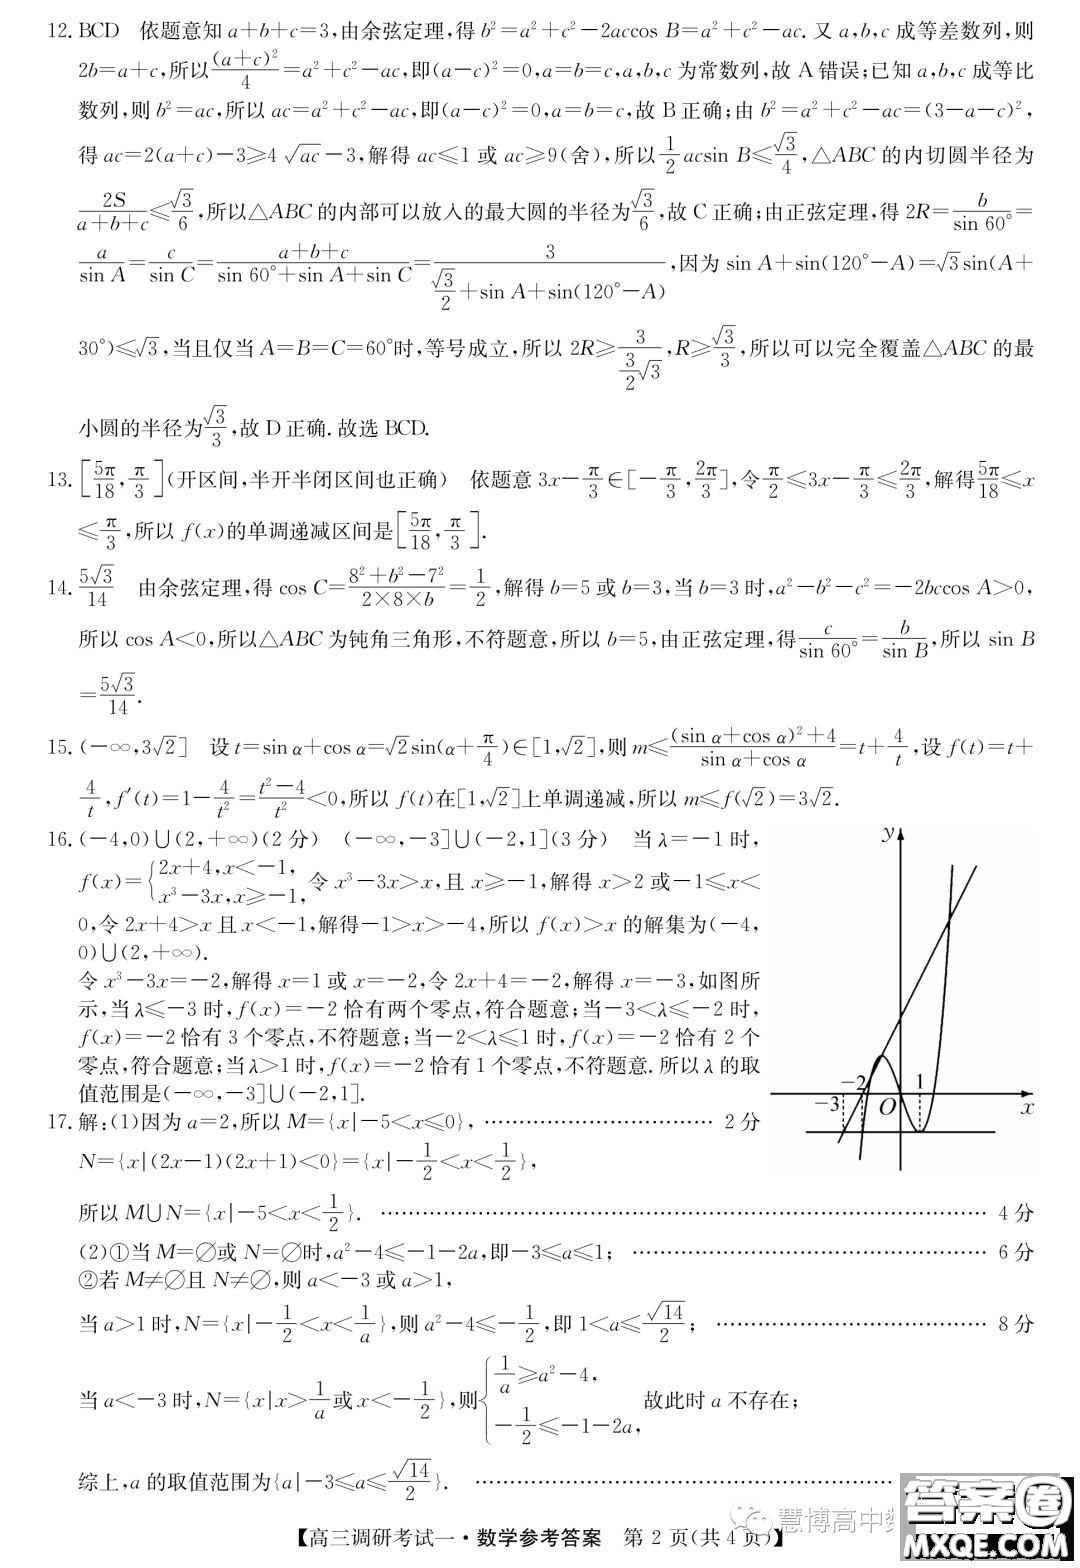 12. BCD 依题意知 a+b+c=3,由余弦定理,得 b²=a²+c²-2accos B=a²+c²-ac. 又 a,b,c 成等差数列,则
2b=a+c,所以 (a+c)²/4=a²+c²-ac,即(a-c)²=0,a=b=c,a,b,c 为常数列,故 A 错误;已知 a,b,c 成等比
数列,则 b²=ac,所以 ac=a²+c²-ac,即(a-c)²=0,a=b=c,故 B 正确;由 b²=a²+c²-ac=(3-a-c)²,
得 ac=2(a+c)-3≥4√ac-3,解得 ac≤1 或 ac≥9(舍),所以 1/2 acsin B≤√3/4,△ABC 的内切圆半径为
2S/(a+b+c)≤√3/6,所以△ABC 的内部可以放入的最大圆的半径为√3/6,故 C 正确;由正弦定理,得 2R=b/sin 60°=
a/sin A=c/sin C=(a+b+c)/(sin 60°+sin A+sin C)=3/(√3/2+sin A+sin(120°-A)),因为 sin A+sin(120°-A)=√3sin(A+
30°)≤√3,当且仅当 A=B=C=60°时,等号成立,所以 2R≥3/(3/2 √3),R≥√3/3,所以可以完全覆盖△ABC 的最
小圆的半径为√3/3,故 D 正确. 故选 BCD.
13. [5π/18,π/3](开区间,半开半闭区间也正确) 依题意 3x-π/3∈[-π/3,2π/3],令 π/2≤3x-π/3≤2π/3,解得 5π/18≤x
≤π/3,所以 f(x)的单调递减区间是[5π/18,π/3].
14. 5√3/14 由余弦定理,得 cos C=(8²+b²-7²)/(2×8×b)=1/2,解得 b=5 或 b=3,当 b=3 时,a²-b²-c²=-2bccos A>0,
所以 cos A<0,所以△ABC 为钝角三角形,不符题意,所以 b=5,由正弦定理,得 c/sin 60°=b/sin B,所以 sin B
=5√3/14.
15. (-∞,3√2] 设 t=sin α+cos α=√2sin(α+π/4)∈[1,√2],则 m≤((sin α+cos α)²+4)/(sin α+cos α)=t+4/t,设 f(t)=t+
4/t,f′(t)=1-4/t²=(t²-4)/t²<0,所以 f(t)在[1,√2]上单调递减,所以 m≤f(√2)=3√2.
16. (-4,0)∪(2,+∞)(2 分) (-∞,-3]∪(-2,1](3 分) 当 λ=-1 时,
f(x)={2x+4,x<-1, x³-3x,x≥-1, 令 x³-3x>x,且 x≥-1,解得 x>2 或-1≤x<
0,令 2x+4>x 且 x<-1,解得-1>x>-4,所以 f(x)>x 的解集为(-4,
0)∪(2,+∞).
令 x³-3x=-2,解得 x=1 或 x=-2,令 2x+4=-2,解得 x=-3,如图所
示,当 λ≤-3 时,f(x)=-2 恰有两个零点,符合题意;当-3<λ≤-2 时,
f(x)=-2 恰有 3 个零点,不符题意;当-2<λ≤1 时,f(x)=-2 恰有 2 个
零点,符合题意;当 λ>1 时,f(x)=-2 恰有 1 个零点,不符题意. 所以 λ 的取
值范围是(-∞,-3]∪(-2,1].
y
-2
1
-3
O
x
17. 解:(1)因为 a=2,所以 M={x|-5<x≤0}, …………………………… 2 分
N={x|(2x-1)(2x+1)<0}={x|-1/2<x<1/2},
所以 M∪N={x|-5<x<1/2}. …………………………… 4 分
(2)①当 M=∅或 N=∅时,a²-4≤-1-2a,即-3≤a≤1; …………………………… 6 分
②若 M≠∅且 N≠∅,则 a<-3 或 a>1,
当 a>1 时,N={x|-1/2<x<1/a},则 a²-4≤-1/2,即 1<a≤√14/2; …………………………… 8 分
当 a<-3 时,N={x|x>1/a 或 x<-1/2},则{1/a≥a²-4, -1/2≤-1-2a, 故此时 a 不存在;
综上,a 的取值范围为{a|-3≤a≤√14/2}. ……………………………
【高三调研考试一·数学参考答案 第 2 页(共 4 页)】
慧博高中数
答案圈
MXQE.COM